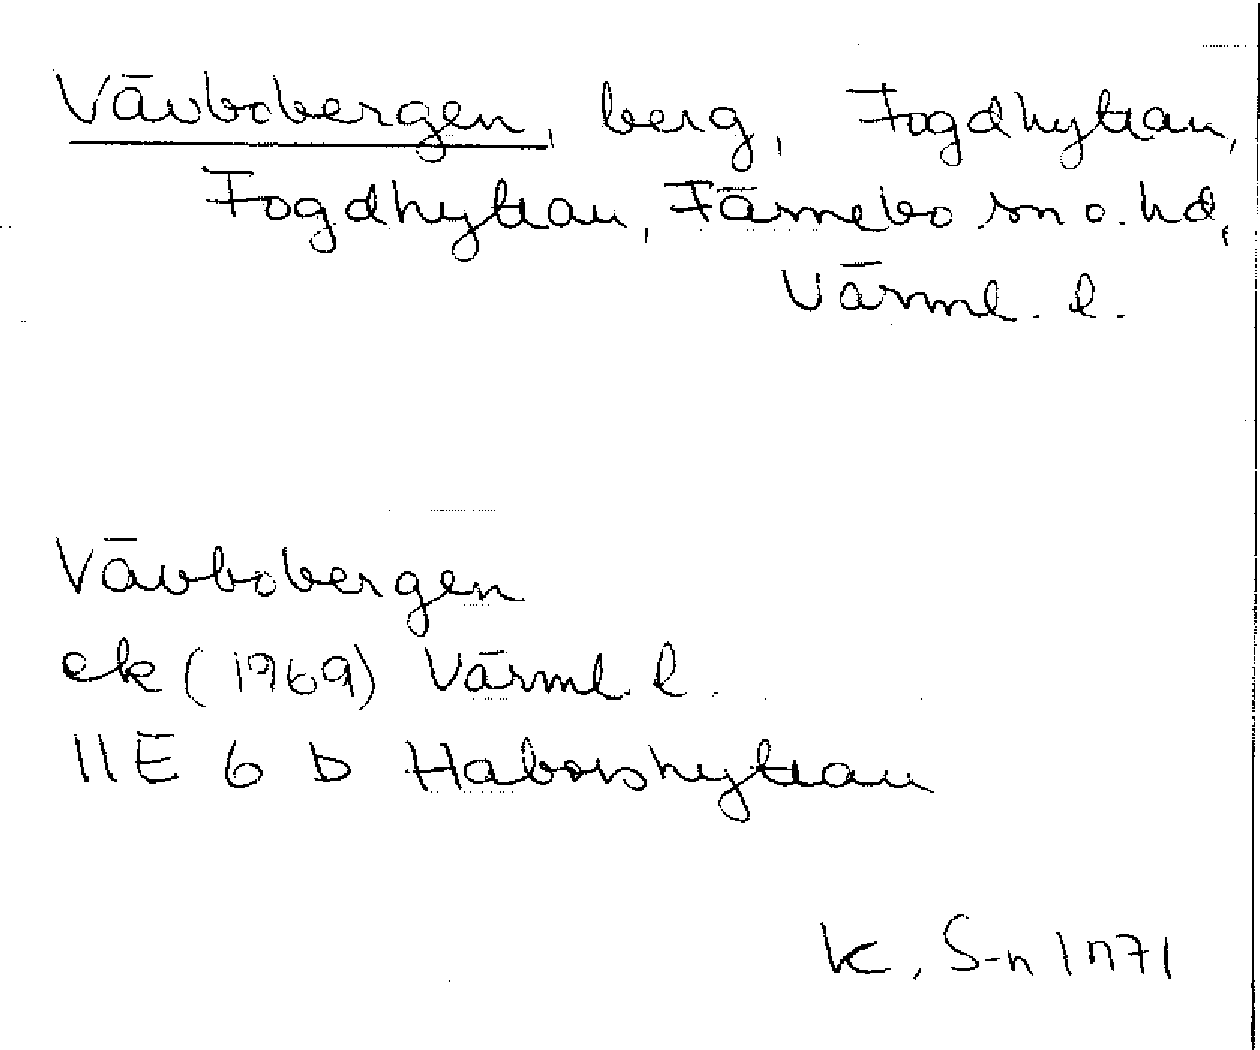 Vävbobergen, berg, Fogdhyttan,
Fogdhyttan, Färnebo sn o. hd,
Värml. l.
Vävbobergen
ek (1969) Värml. l.
11E 6 b Haborshyttan
K. S-n 1971